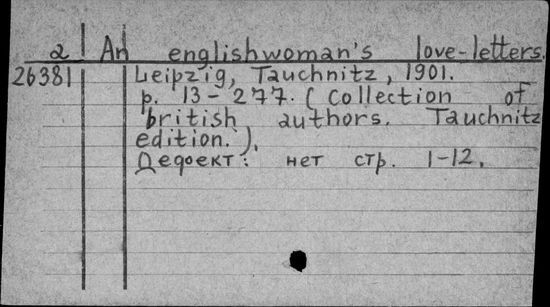 2 An englishwoman's love-letters.
26381 Leipzig, Tauchnitz, 1901.
p. 13-277. (Collection of
british authors. Tauchnitz
edition.).
Дефект: нет стр. 1-12.